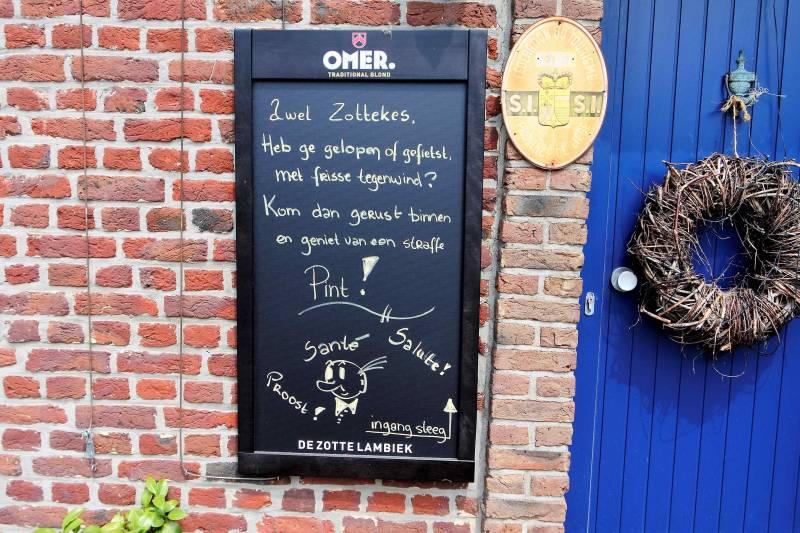 OMER.
TRADITIONAL BLOND
Awel Zottekes,
Heb ge gelopen of gefietst,
met frisse tegenwind?
Kom dan gerust binnen
en geniet van een straffe
Pint!
Santé
Salute!
Proost!
ingang steeg
DE ZOTTE LAMBIEK
S.I.
S.I.